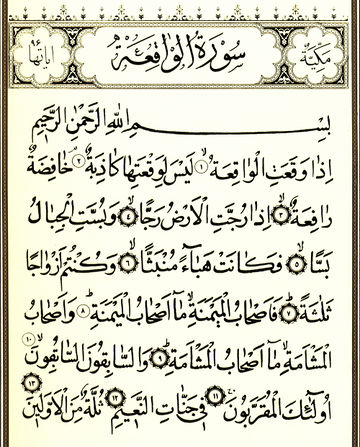 مكية سورة الواقعة اياتها ٩٦
بِسْمِ اللّٰهِ الرَّحْمٰنِ الرَّحِيْمِ
اِذَا وَقَعَتِ الْوَاقِعَةُ ١ لَيْسَ لِوَقْعَتِهَا كَاذِبَةٌ ٢ خَافِضَةٌ
رَافِعَةٌ ٣ اِذَا رُجَّتِ الْاَرْضُ رَجًّا ٤ وَبُسَّتِ الْجِبَالُ
بَسًّا ٥ فَكَانَتْ هَبَاءً مُنْبَثًّا ٦ وَكُنْتُمْ اَزْوَاجًا
ثَلٰثَةً ٧ فَاَصْحَابُ الْمَيْمَنَةِ مَا اَصْحَابُ الْمَيْمَنَةِ ٨ وَاَصْحَابُ
الْمَشْاَمَةِ مَا اَصْحَابُ الْمَشْاَمَةِ ٩ وَالسَّابِقُونَ السَّابِقُونَ ١٠
اُولٰئِكَ الْمُقَرَّبُونَ ١١ فِي جَنَّاتِ النَّعِيمِ ١٢ ثُلَّةٌ مِنَ الْاَوَّلِينَ ١٣